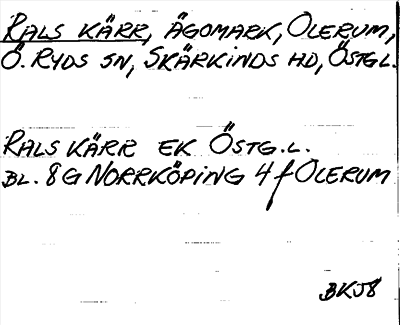 RALS KÄRR, ÄGOMARK, OLERUM,
Ö. RYDS SN, SKÄRKINDS HD, ÖSTG L.
RALS KÄRR EK ÖSTG. L.
BL. 8G NORRKÖPING 4 f OLERUM
BKJ8